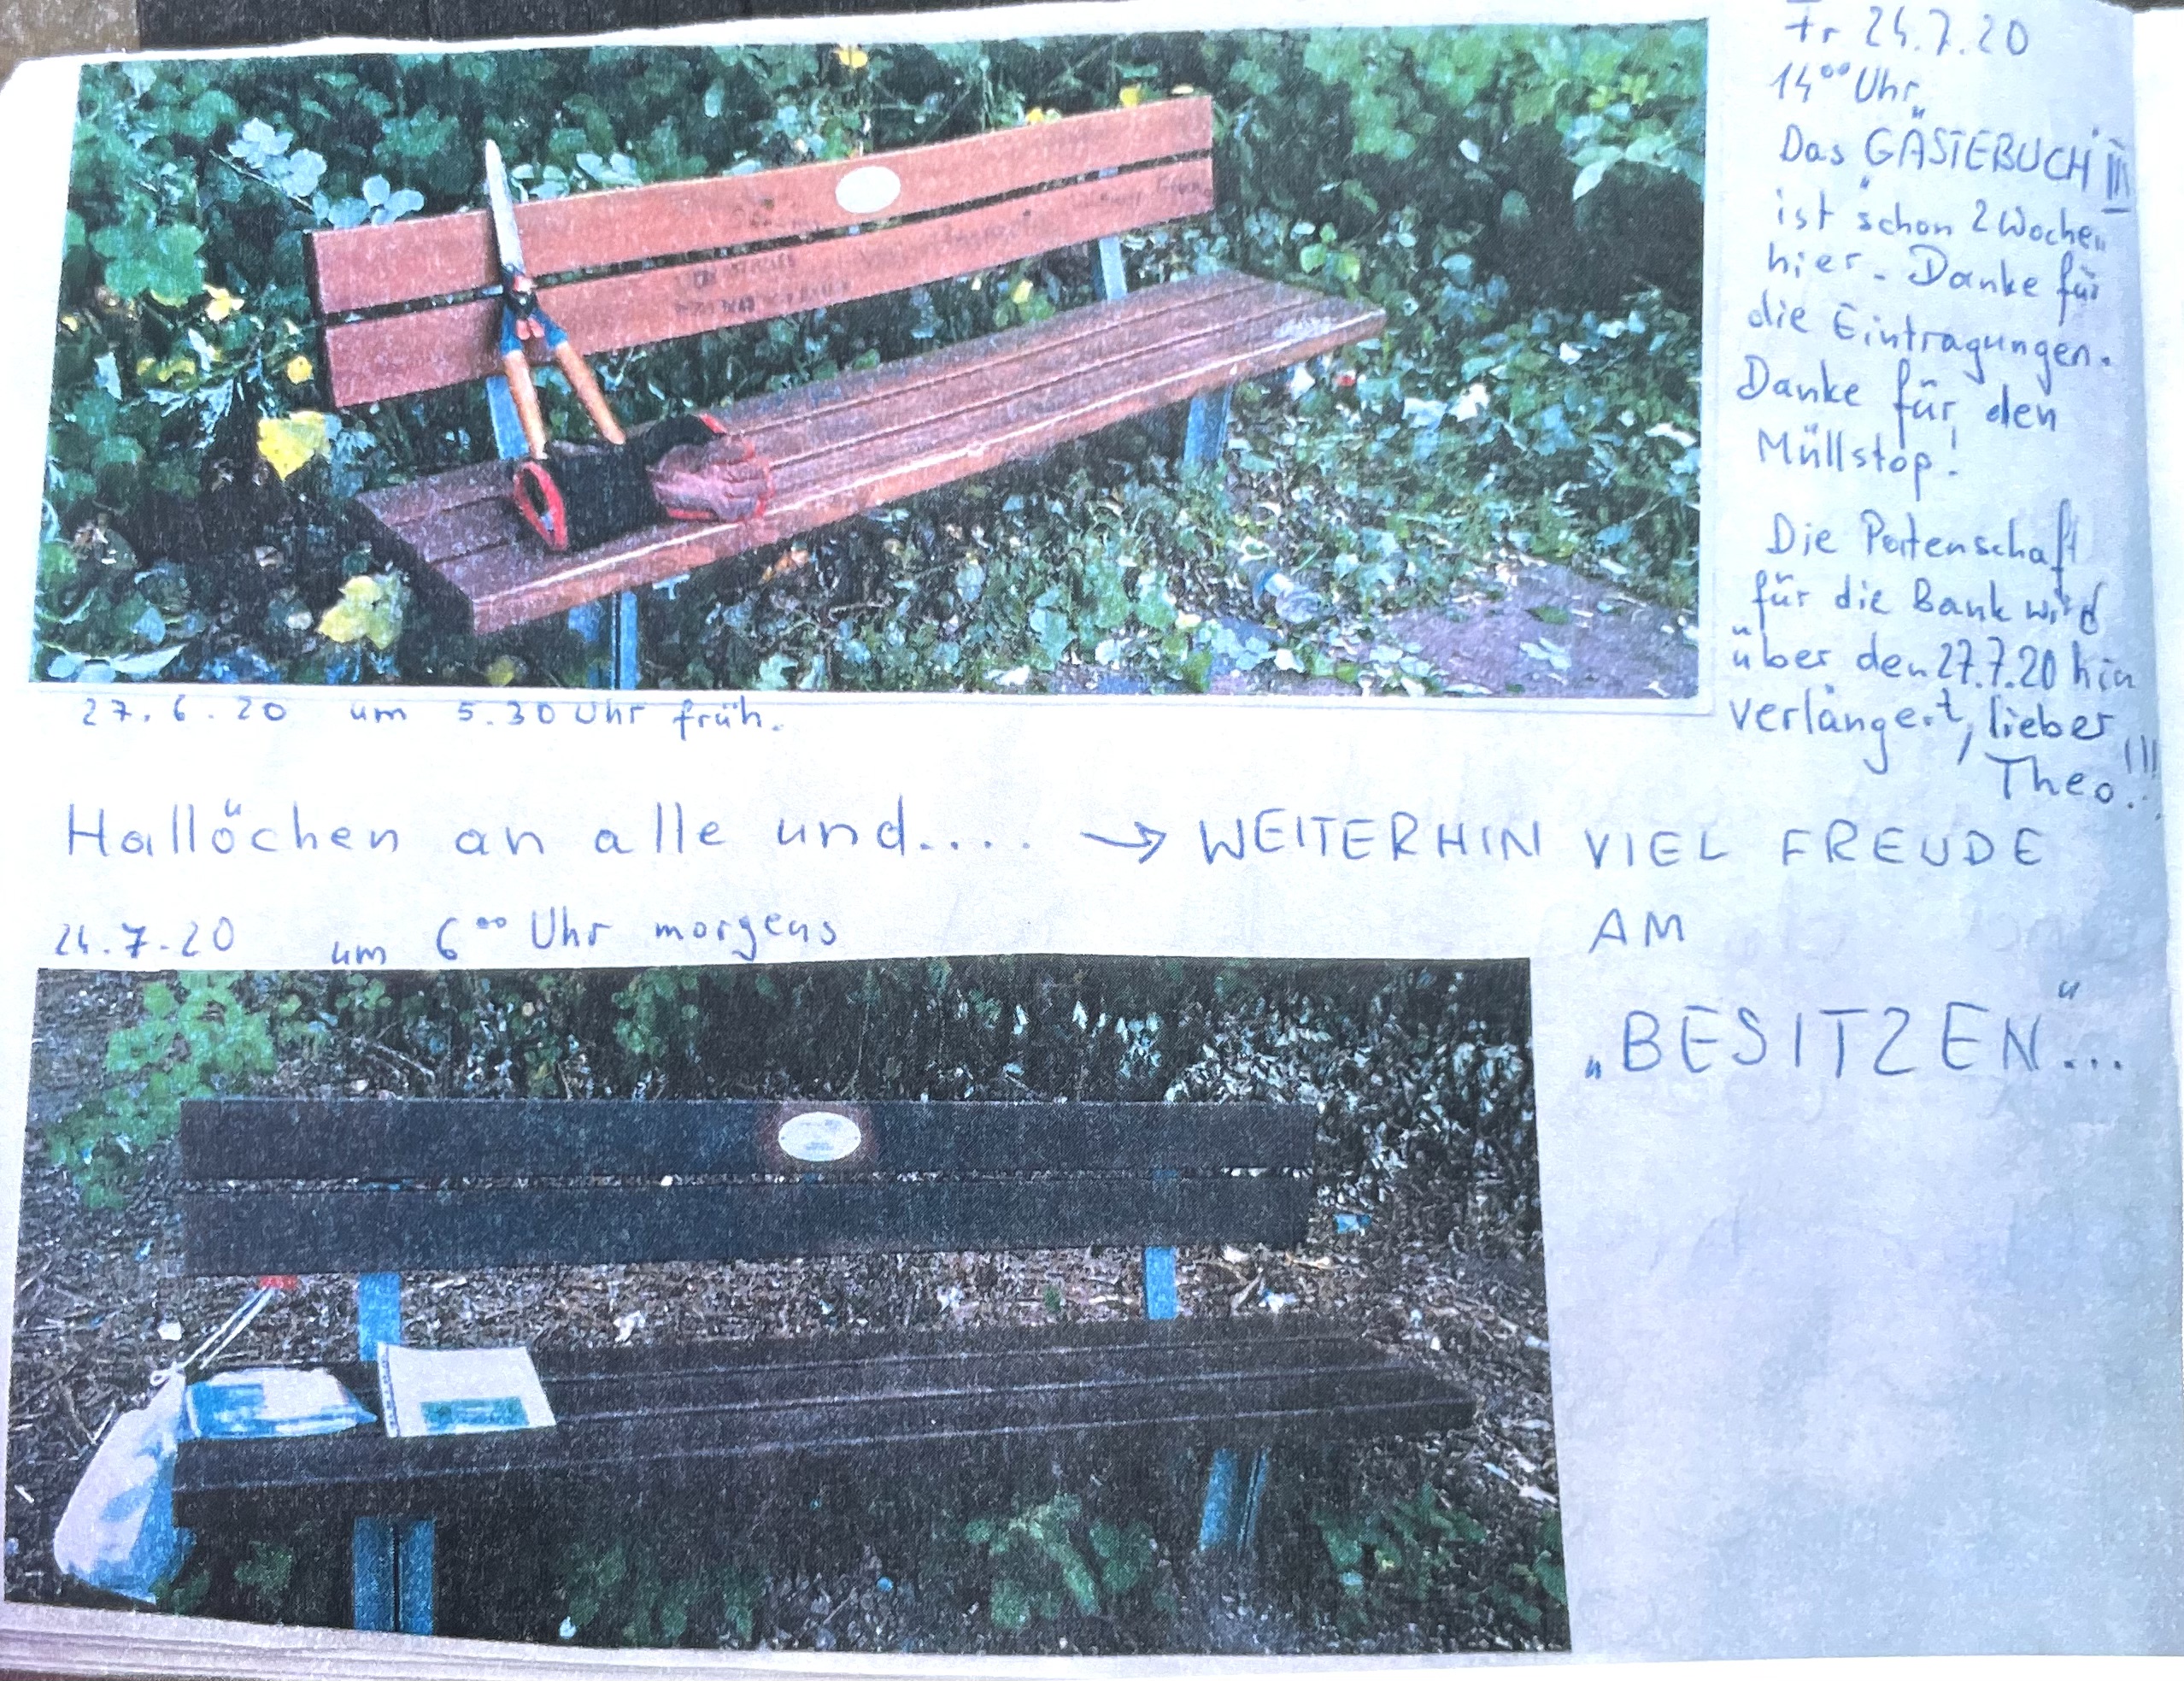 Fr 24.7.20
14°° Uhr
Das "GÄSTEBUCH" III
ist schon 2 Wochen
hier. Danke für
die Eintragungen.
Danke für den
Müllstop!
Die Patenschaft
für die Bank wird
über den 27.7.20 hin
verlängert, lieber
Theo!!!
27.6.20 um 5.30 Uhr früh.
Hallöchen an alle und.... → WEITERHIN VIEL FREUDE
AM
„BESITZEN"...
24.7.20 um 6°° Uhr morgens